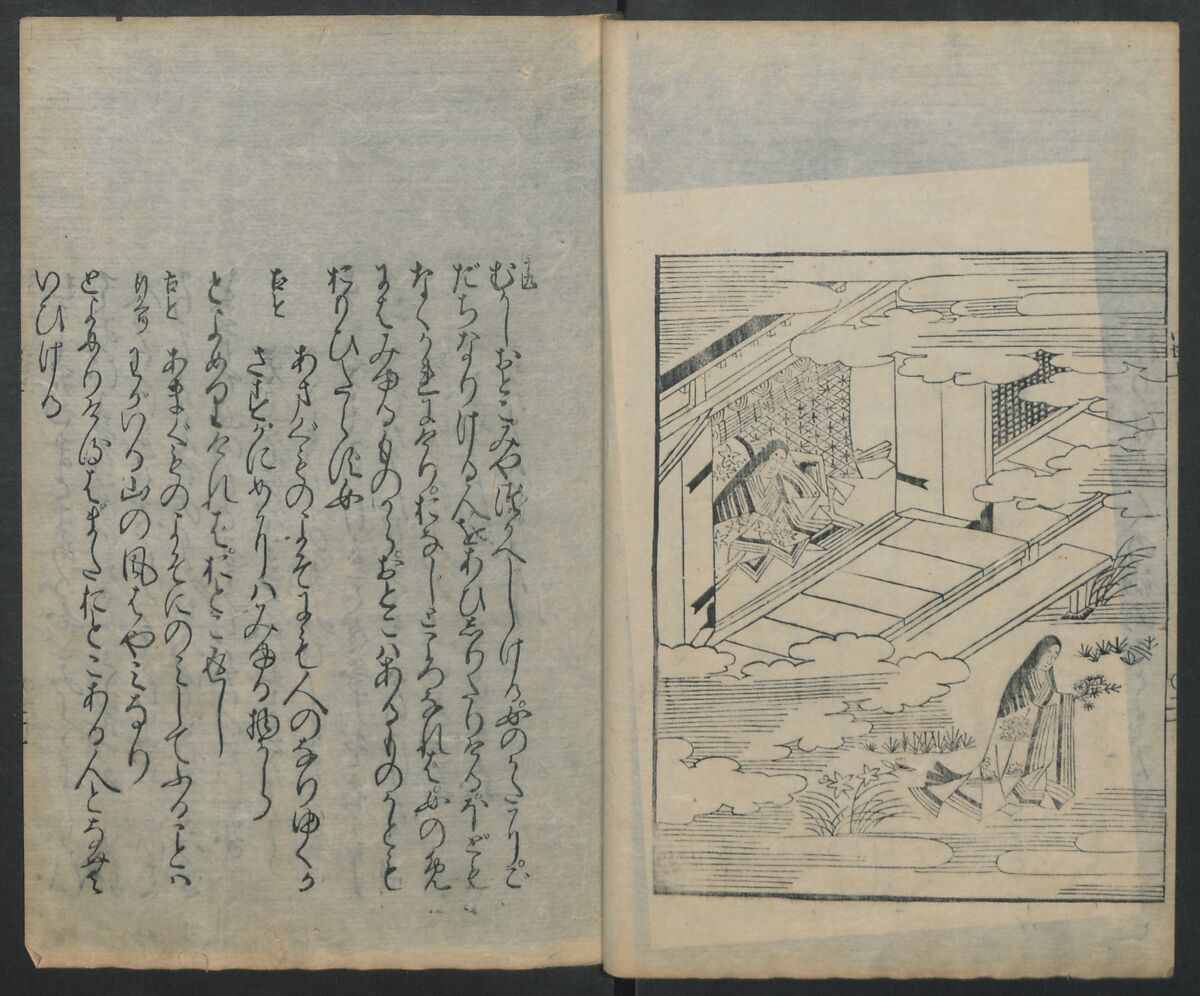 むかしおとこみや徒かへしける女のかたにご
だちなりける人をあひしりたりけるほどと
なくかれにけりおなじところなれば女のめ
にはみゆるものからおとこはあるものかとも
おりひたらず女
あまぐものよそにも人のなりゆくか
さすがにめにはみゆる物から
とよめりければおとこ返し
あまぐものよそにのみしてふることは
わがゐる山の風はやみなり
とよめりけるはまたおとこある人となむ
いひける